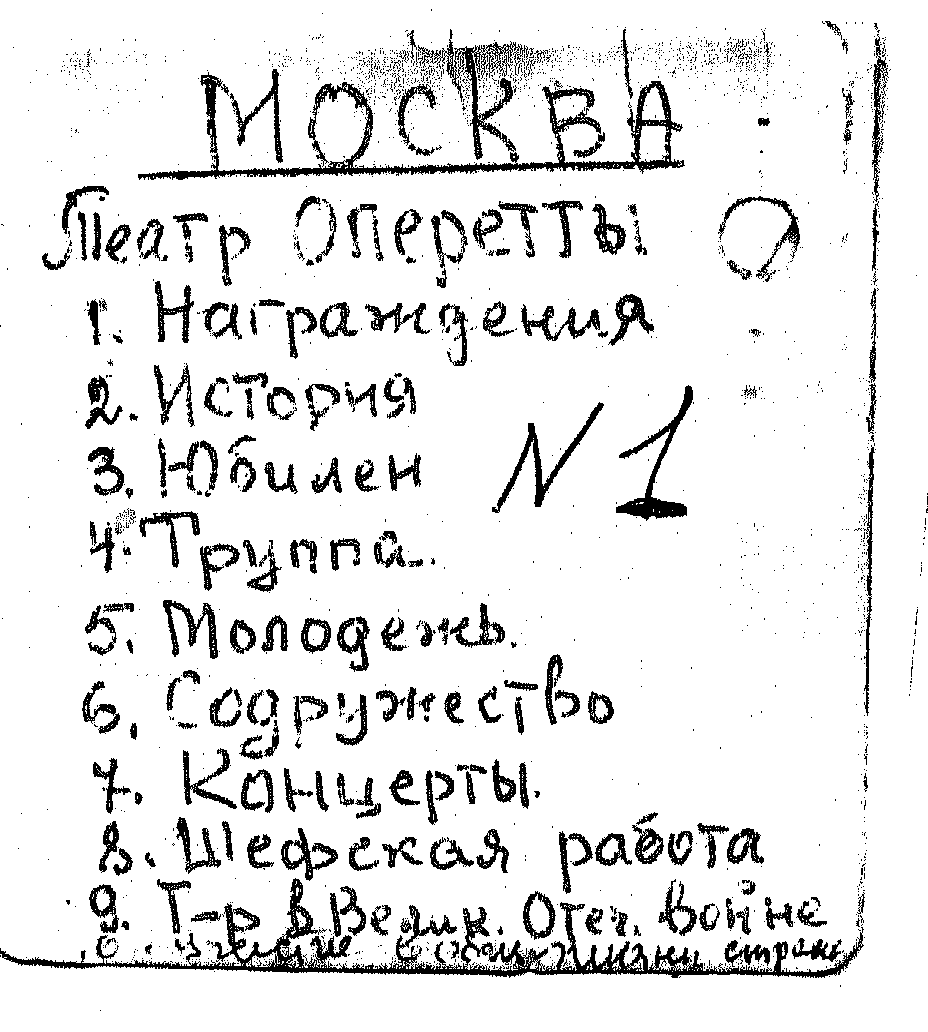 МОСКВА
Театр Оперетты
1. Награждения
2. История
3. Юбилеи
N 1
4. Труппа.
5. Молодежь.
6. Содружество
7. Концерты.
8. Шефская работа
9. Т-р в Велик. Отеч. войне
стране